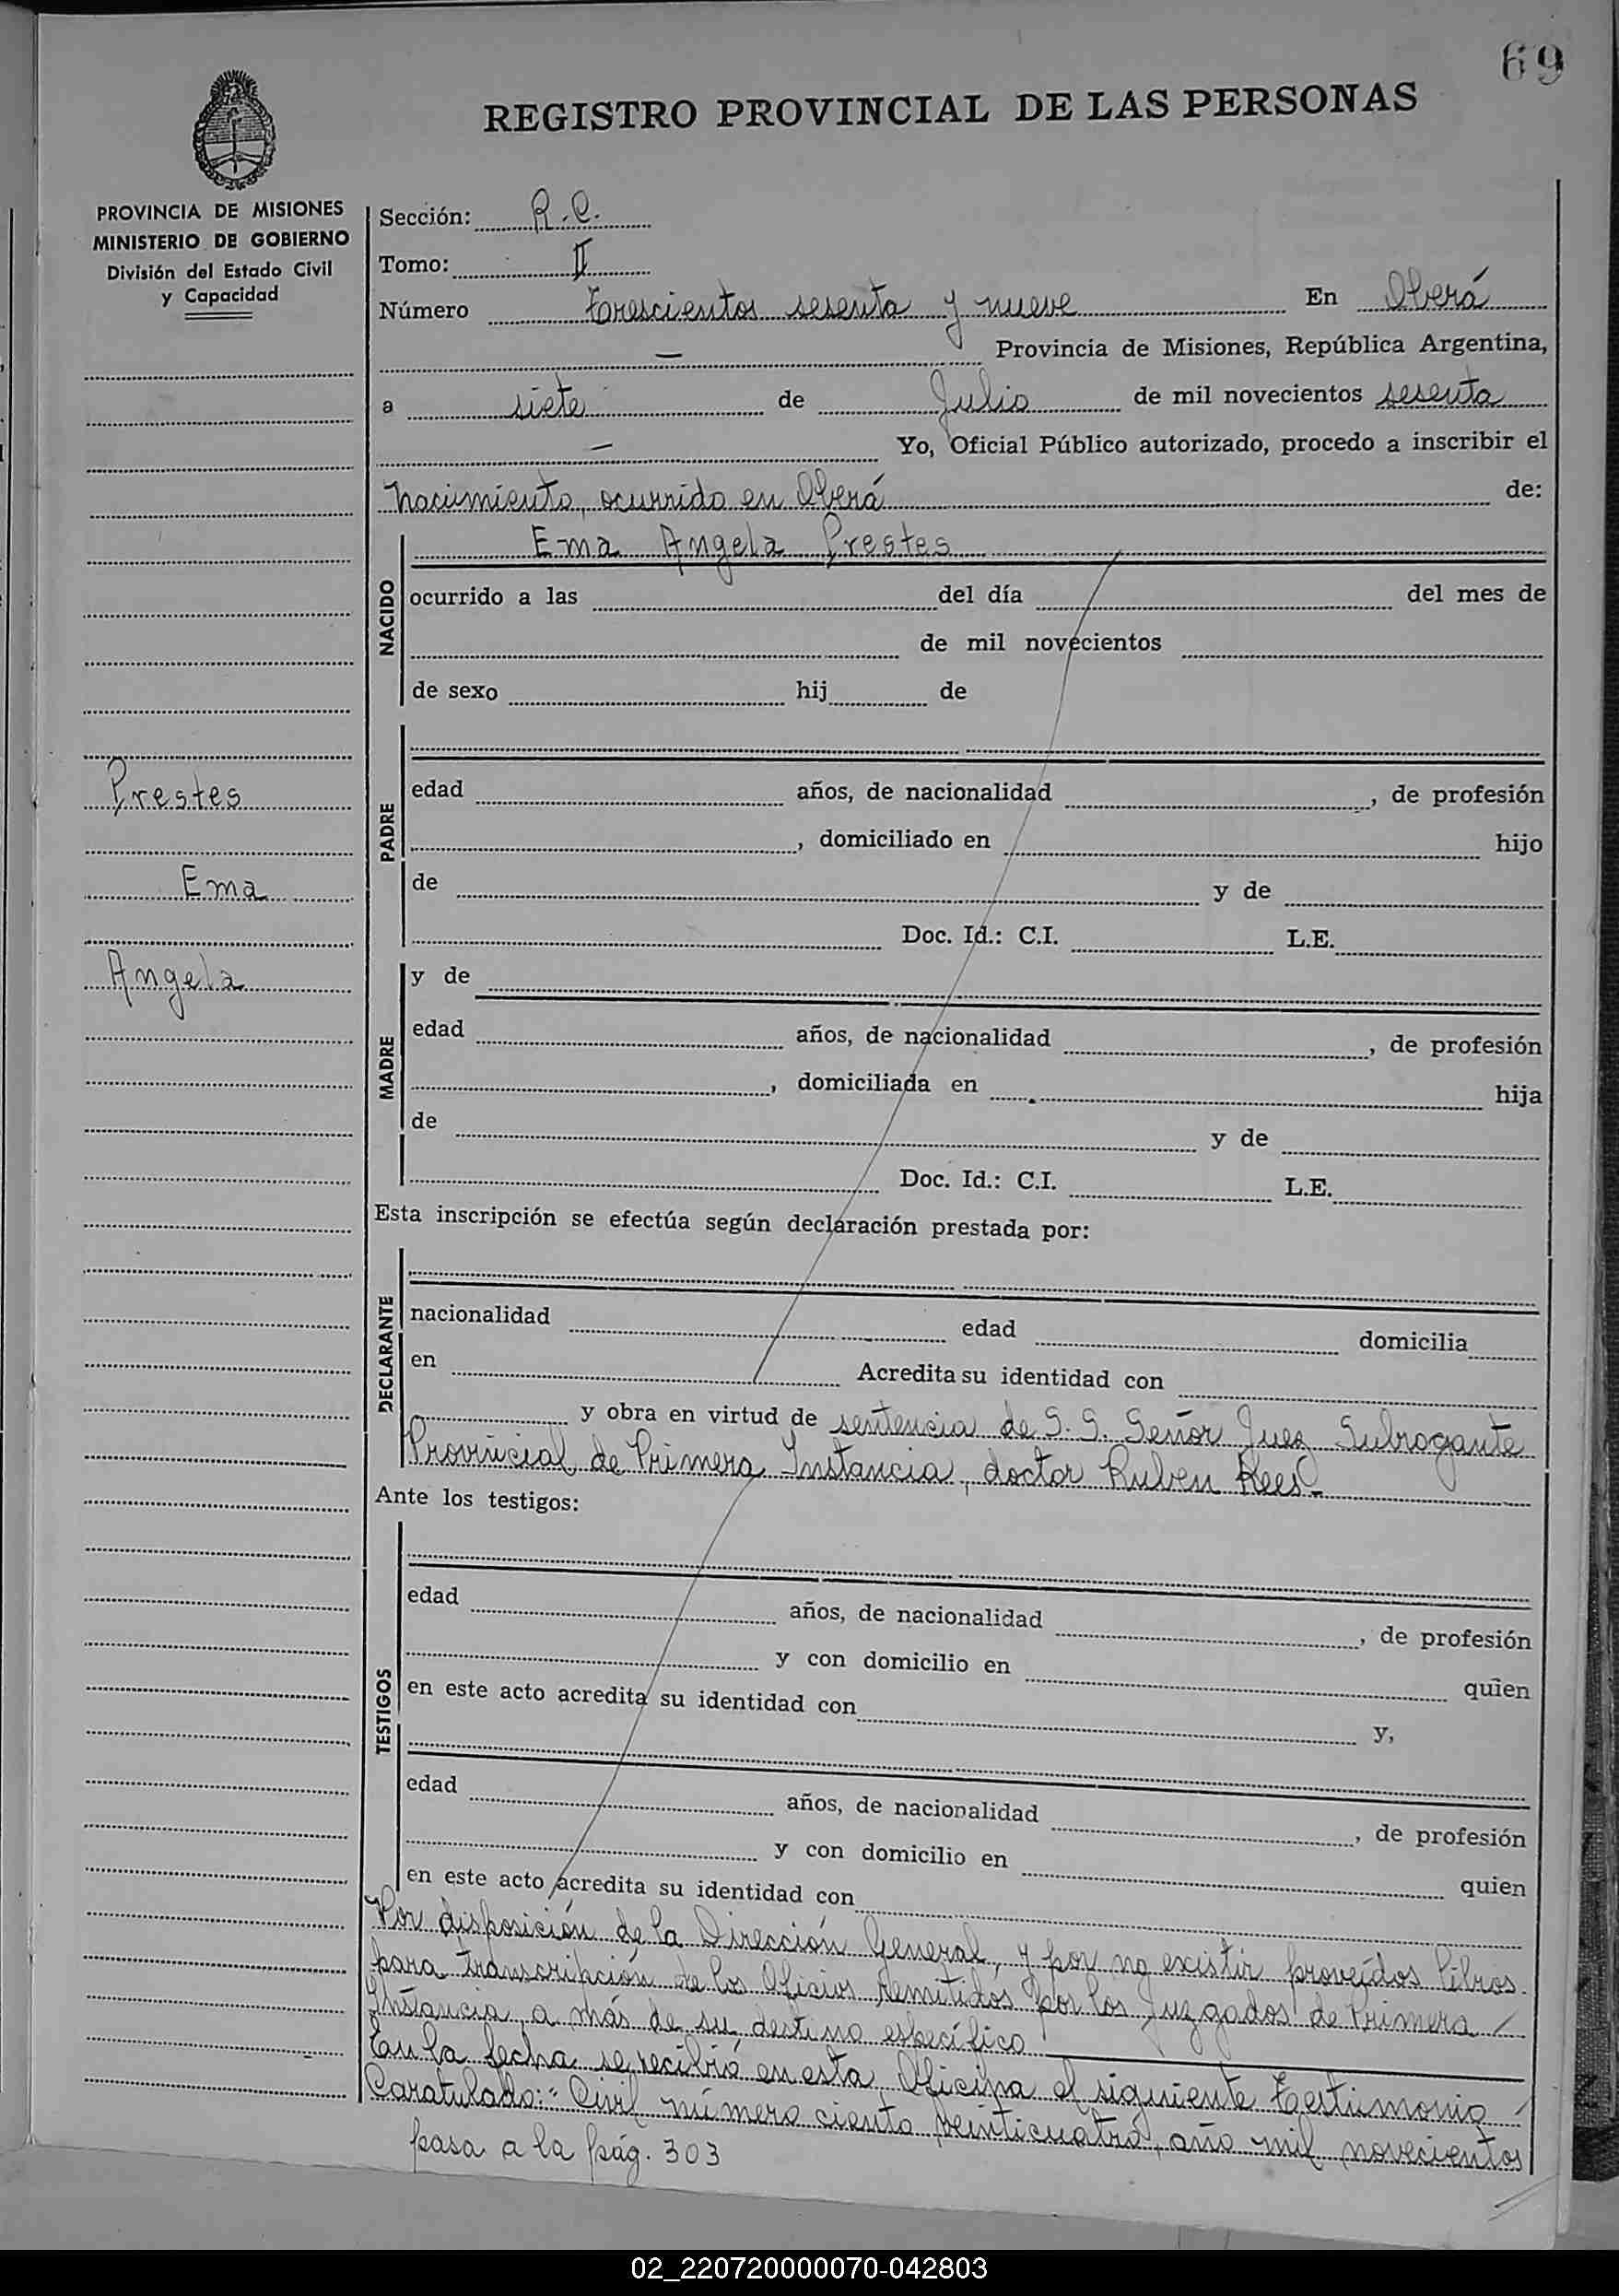 69
REGISTRO PROVINCIAL DE LAS PERSONAS
PROVINCIA DE MISIONES
MINISTERIO DE GOBIERNO
División del Estado Civil
y Capacidad
Sección: R.C.
Tomo: II
Número Trescientos sesenta y nueve En Oberá
— Provincia de Misiones, República Argentina,
a siete de Julio de mil novecientos sesenta
— Yo, Oficial Público autorizado, procedo a inscribir el
nacimiento, ocurrido en Oberá de:
NACIDO
Ema Angela Prestes
ocurrido a las del día del mes de
de mil novecientos
de sexo hij de
Prestes
Ema
Angela
PADRE
edad años, de nacionalidad , de profesión
, domiciliado en hijo
de y de
Doc. Id.: C.I. L.E.
MADRE
y de
edad años, de nacionalidad , de profesión
, domiciliada en hija
de y de
Doc. Id.: C.I. L.E.
Esta inscripción se efectúa según declaración prestada por:
DECLARANTE
nacionalidad edad domicilia
en Acredita su identidad con
y obra en virtud de sentencia de S. S. Señor Juez Subrogante
Provincial de Primera Instancia, doctor Ruben Rees.-
Ante los testigos:
TESTIGOS
edad años, de nacionalidad , de profesión
y con domicilio en quien
en este acto acredita su identidad con y,
edad años, de nacionalidad , de profesión
y con domicilio en quien
en este acto acredita su identidad con
Por disposición de la Dirección General, y por no existir proveídos libros
para transcripción de los Oficios remitidos por los Juzgados de Primera
Instancia, a más de su destino específico
En la fecha se recibió en esta Oficina el siguiente Testimonio
Caratulado: "Civil número ciento veinticuatro, año mil novecientos
pasa a la pág. 303
02_220720000070-042803